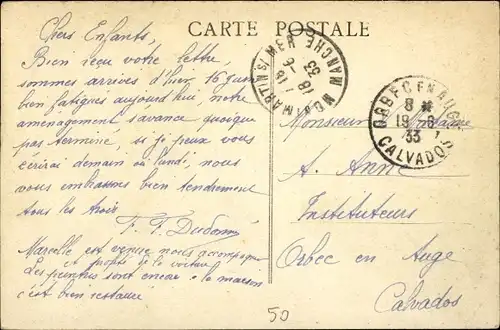 CARTE POSTALE
Chers Enfants,
Bien reçu votre lettre,
sommes arrivés d'hier, 16 juin
bien fatigués aujourd'hui, notre
aménagement s'avance quoique
pas terminé, si je peux vous
écrirai demain ou lundi, nous
vous embrassons bien tendrement
tous les trois
Marcelle est venue nous accompagner
et profité de la voiture
Les peintres sont encore à la maison
c'est bien restauré
MANCHE
18 - 6
33
ORBEC EN AUGE
8
19 - 6
33
CALVADOS
Monsieur Madame
A. Anne
Instituteurs
Orbec en Auge
Calvados
50